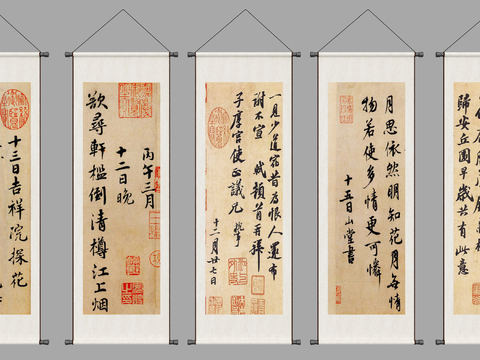 歸安丘園早歲共有此意
月思依然明知花月無情
物若使多情更可憐
十五日山堂書
一見少道宿昔爲恨人還布
謝不宣 軾頓首再拜
子厚宮使正議兄 執事
十二月廿七日
丙午三月
十二日晚
歘尋軒檻倒清樽江上烟
十三日吉祥院探花